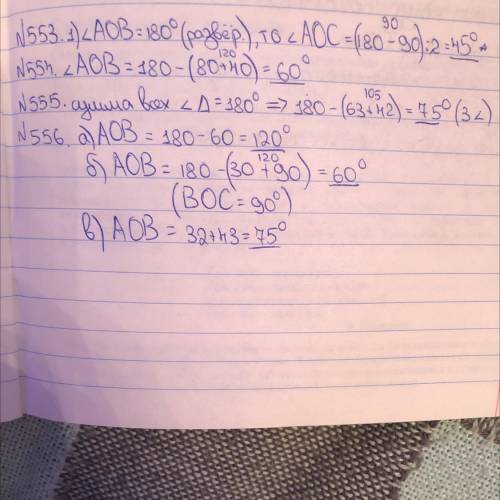 90
№553. 1) ∠AOB = 180° (развёр.), то ∠AOC = (180 - 90) : 2 = 45°
120
№554. ∠AOB = 180 - (80 + 40) = 60°
105
№555. сумма всех ∠ Δ = 180° => 180 - (63 + 42) = 75° (3∠)
№556. а) AOB = 180 - 60 = 120°
120
б) AOB = 180 - (30 + 90) = 60°
(BOC = 90°)
в) AOB = 32 + 43 = 75°